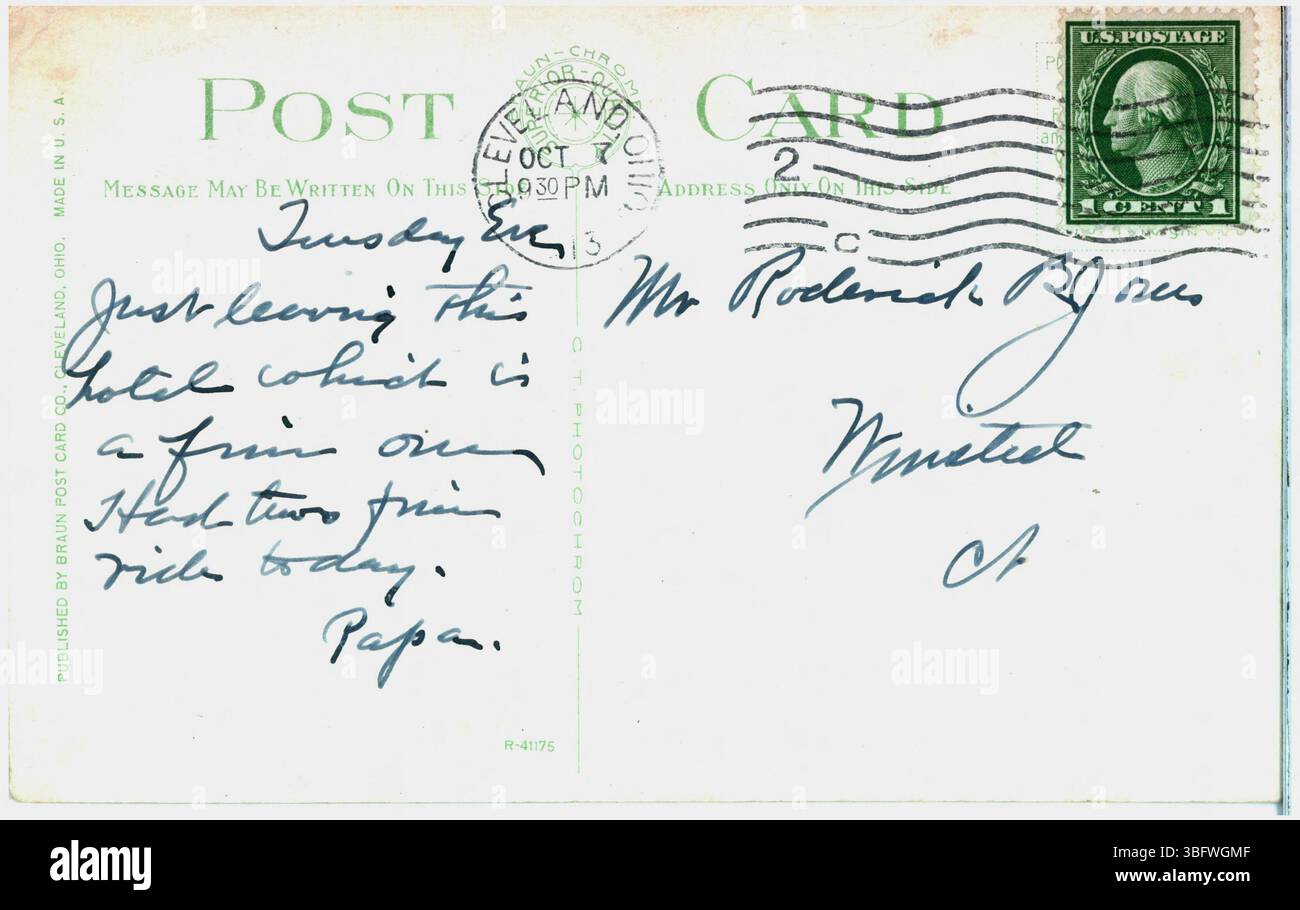 POST CARD
MESSAGE MAY BE WRITTEN ON THIS SIDE
ADDRESS ONLY ON THIS SIDE
CLEVELAND, OHIO
OCT 7
9 30 PM
13
2
C
U.S. POSTAGE
1 CENT 1
Tuesday Eve,
Just leaving this
hotel which is
a fine one
Had two fine
rides today.
Papa.
Mr Roderick B Jones
Winsted
Ct
PUBLISHED BY BRAUN POST CARD CO., CLEVELAND, OHIO. MADE IN U. S. A.
C. T. PHOTOCHROM
R-41175
alamy
alamy
alamy
alamy
alamy
Image ID: 3BFWGMF
www.alamy.com